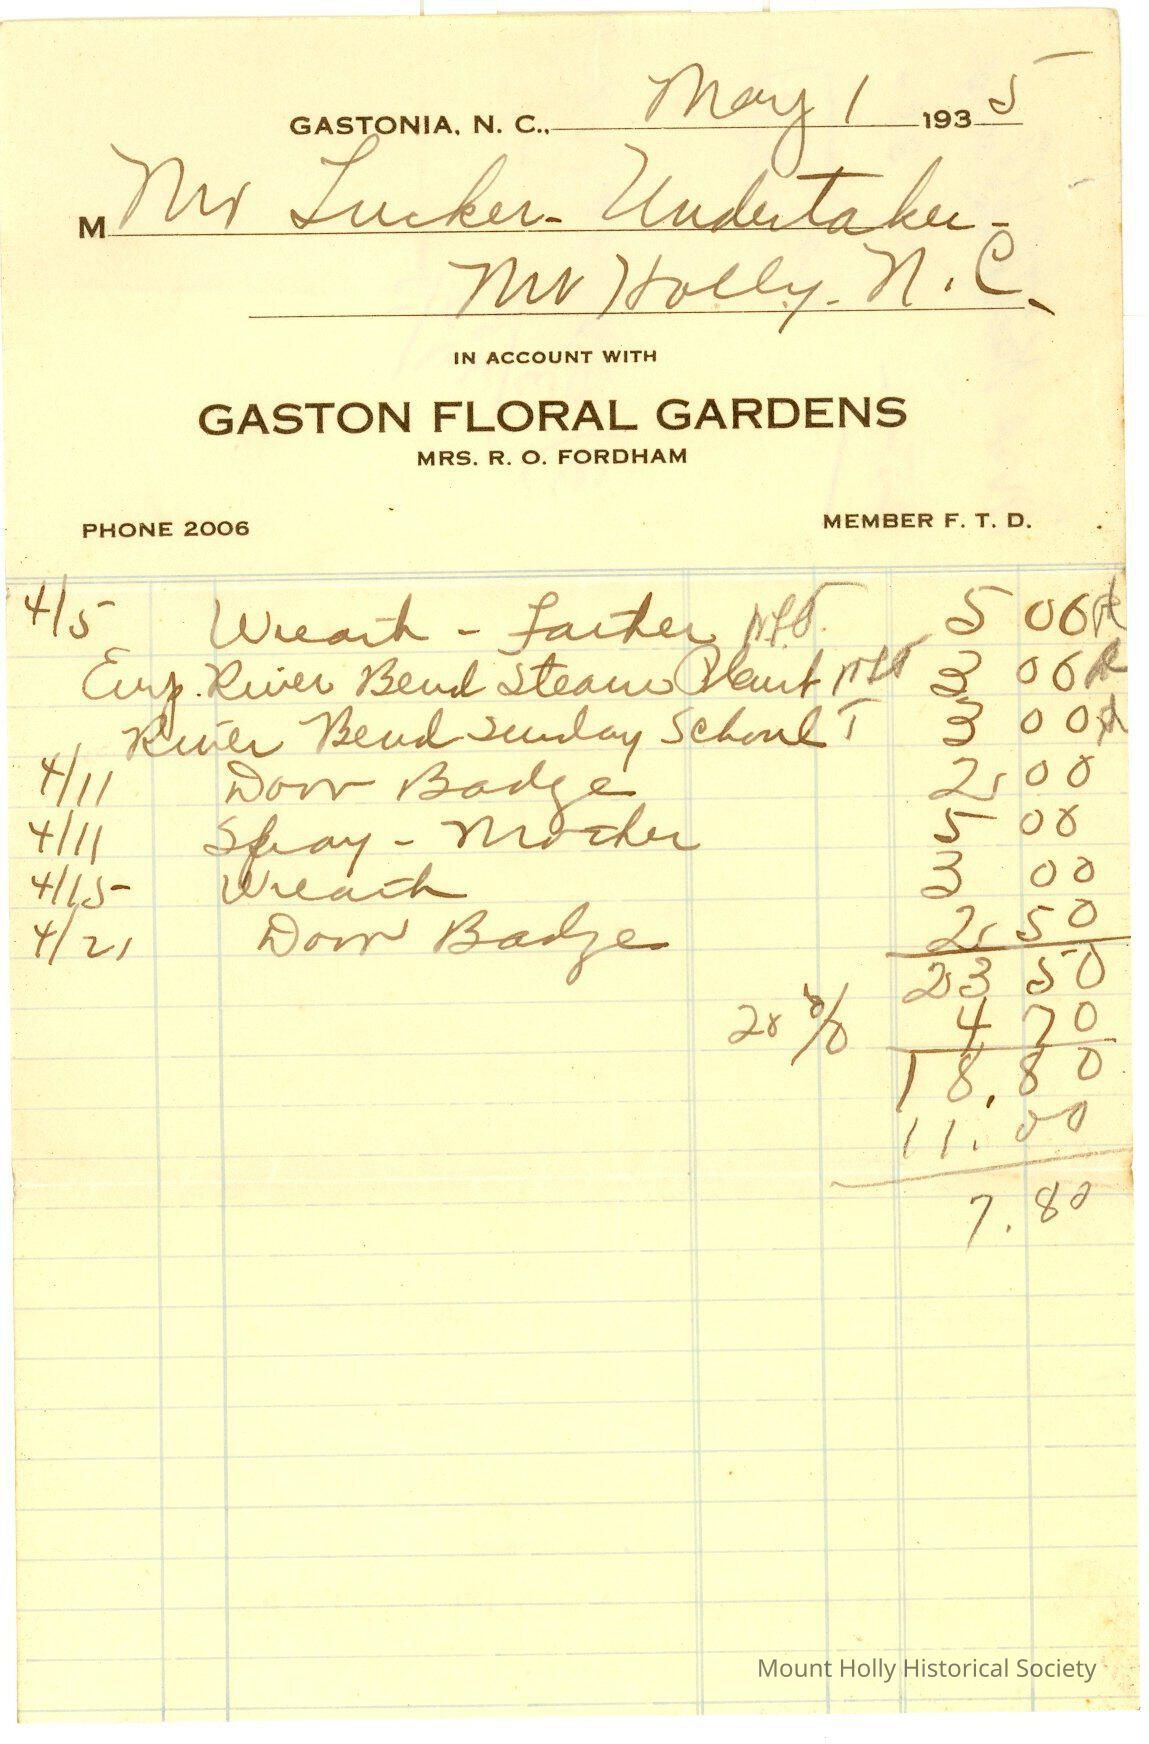 GASTONIA, N. C., May 1 1935
M Mr Lucker - Undertaker -
Mt Holly. N. C.
IN ACCOUNT WITH
GASTON FLORAL GARDENS
MRS. R. O. FORDHAM
PHONE 2006 MEMBER F. T. D.
4/5 Wreath - Father 5 00
Emp. River Bend Steam Plant 3 00
River Bend Sunday School T 3 00
4/11 Door Badge 2, 00
4/11 Spray - Mother 5 00
4/15 Wreath 3 00
4/21 Door Badge 2, 50
23 50
20 % 4 70
18.80
11.00
7.80
Mount Holly Historical Society